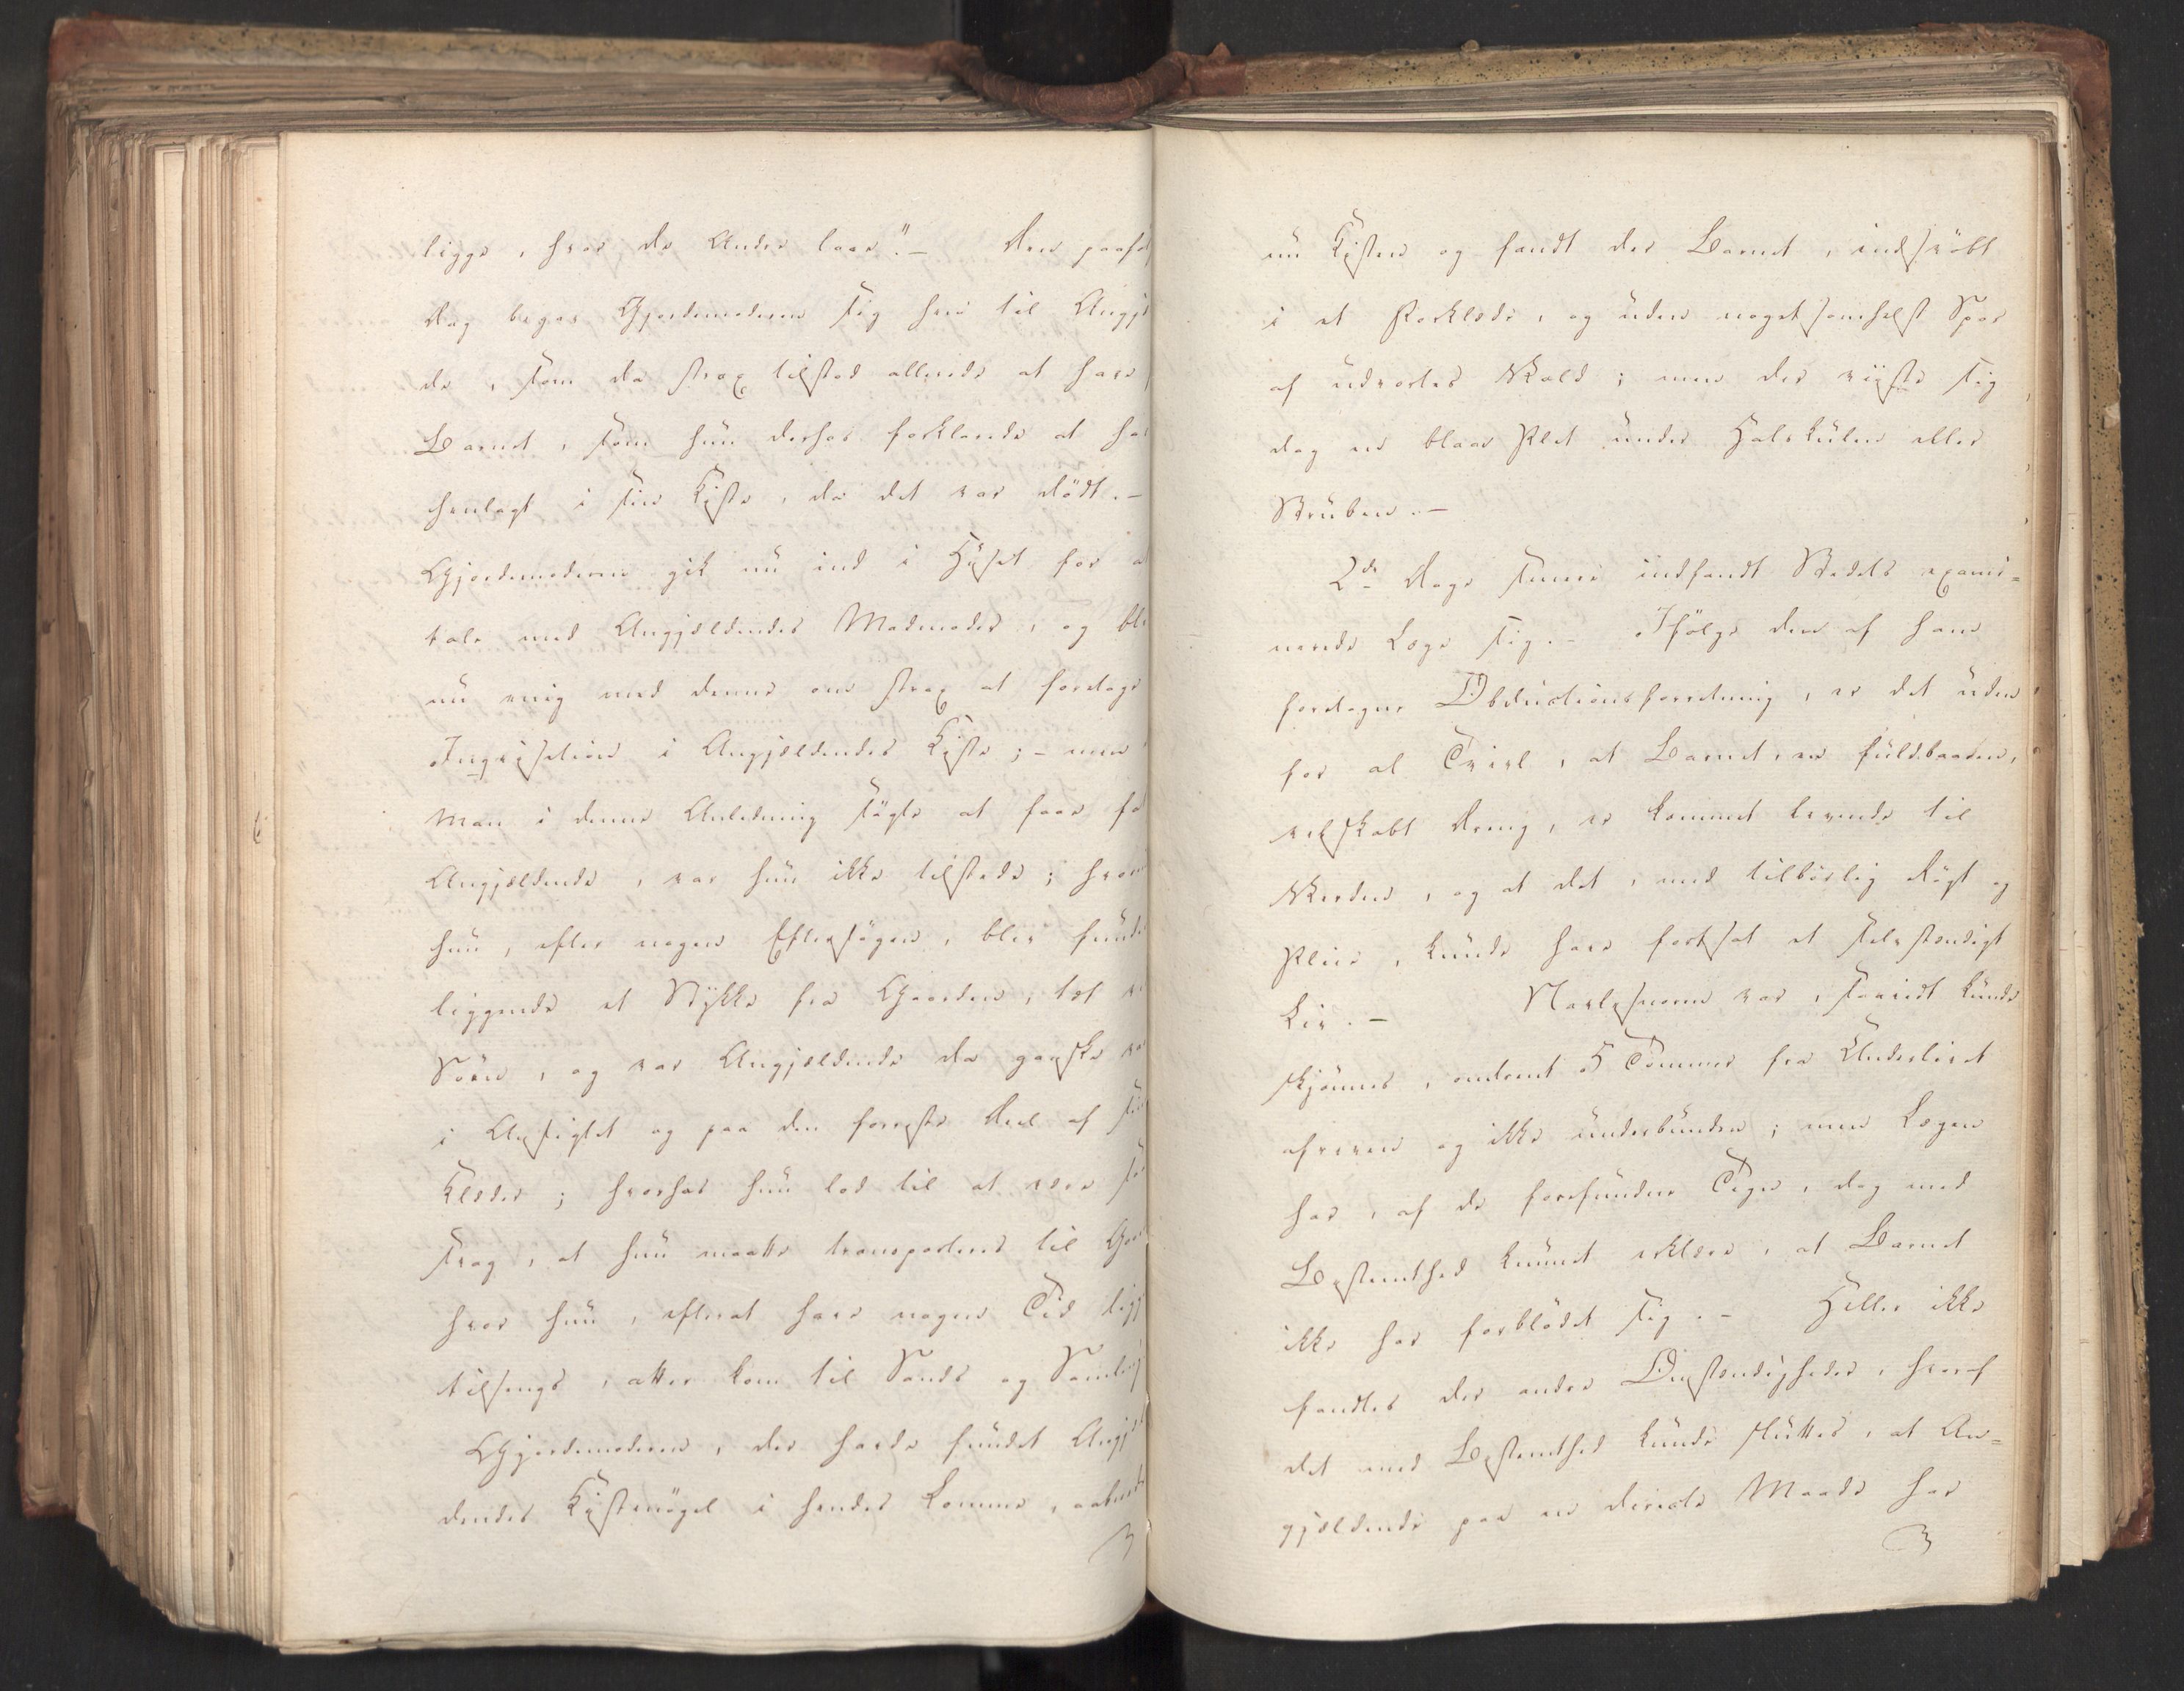 ligge, hvor de Andre laae". - Den paaføl
Dag begav Gjordemoderen sig hen til Angjæ
de, som da strax tilstod allerede at have
Barnet, som hun derhos forklarede at ha
henlagt i sin Kiste, da det var dødt. -
Gjordemoderen gik nu ind i Huset for a
tale med Angjældendes Madmoder, og ble
nu enig med denne om strax at foretage
Inqvisition i Angjældendes Kiste; - men
man i denne Anledning søgte at faae fa
Angjældende, var hun ikke tilstede; hvor
hun, efter nogen Eftersøgen, blev funde
liggende et Stykke fra Gaarden, tæt v
Søen, og var Angjældende da ganske va
i Ansigtet og paa den forreste Deel af sin
Klæder; hvorhos hun lod til at være so
svag, at hun maatte transporteres til Gaa
hvor hun, efterat have nogen Tid ligg
tilsengs, atter kom til Sands og Samling
Gjordemoderen, der havde fundet Angjæl
dendes Kistenøgel i hendes Lomme, aabnede
nu Kisten og fandt der Barnet, indsvøbt
i et Forklæde, og uden nogetsomhelst Spor
af udvortes Vold; men der viiste sig
dog en blaae Plet under Halskulen eller
Struben. -
2de Dage senere indfandt Stedets exami=
nerede Læge sig. - Ifølge den af ham
foretagne Obductionsforretning, er det uden
for al Tvivl, at Barnet, en fuldbaaren,
velskabt Dreng, er kommet levende til
Verden, og at det, med tilbørlig Røgt og
Pleie, kunde have fortsat et selvstændigt
Liv. - Navlesnoren var, saavidt kunde
skjønnes, omtrent 5 Tommer fra Underlivet
afreven og ikke underbunden; men Lægen
har, af de forefundne Tegn, dog med
Bestemthed kunnet erklære, at Barnet
ikke har forblødet sig. - Heller ikke
fandtes der andre Omstændigheder, hvoraf
det med Bestemthed kunde sluttes, at An=
gjældende paa en directe Maade har